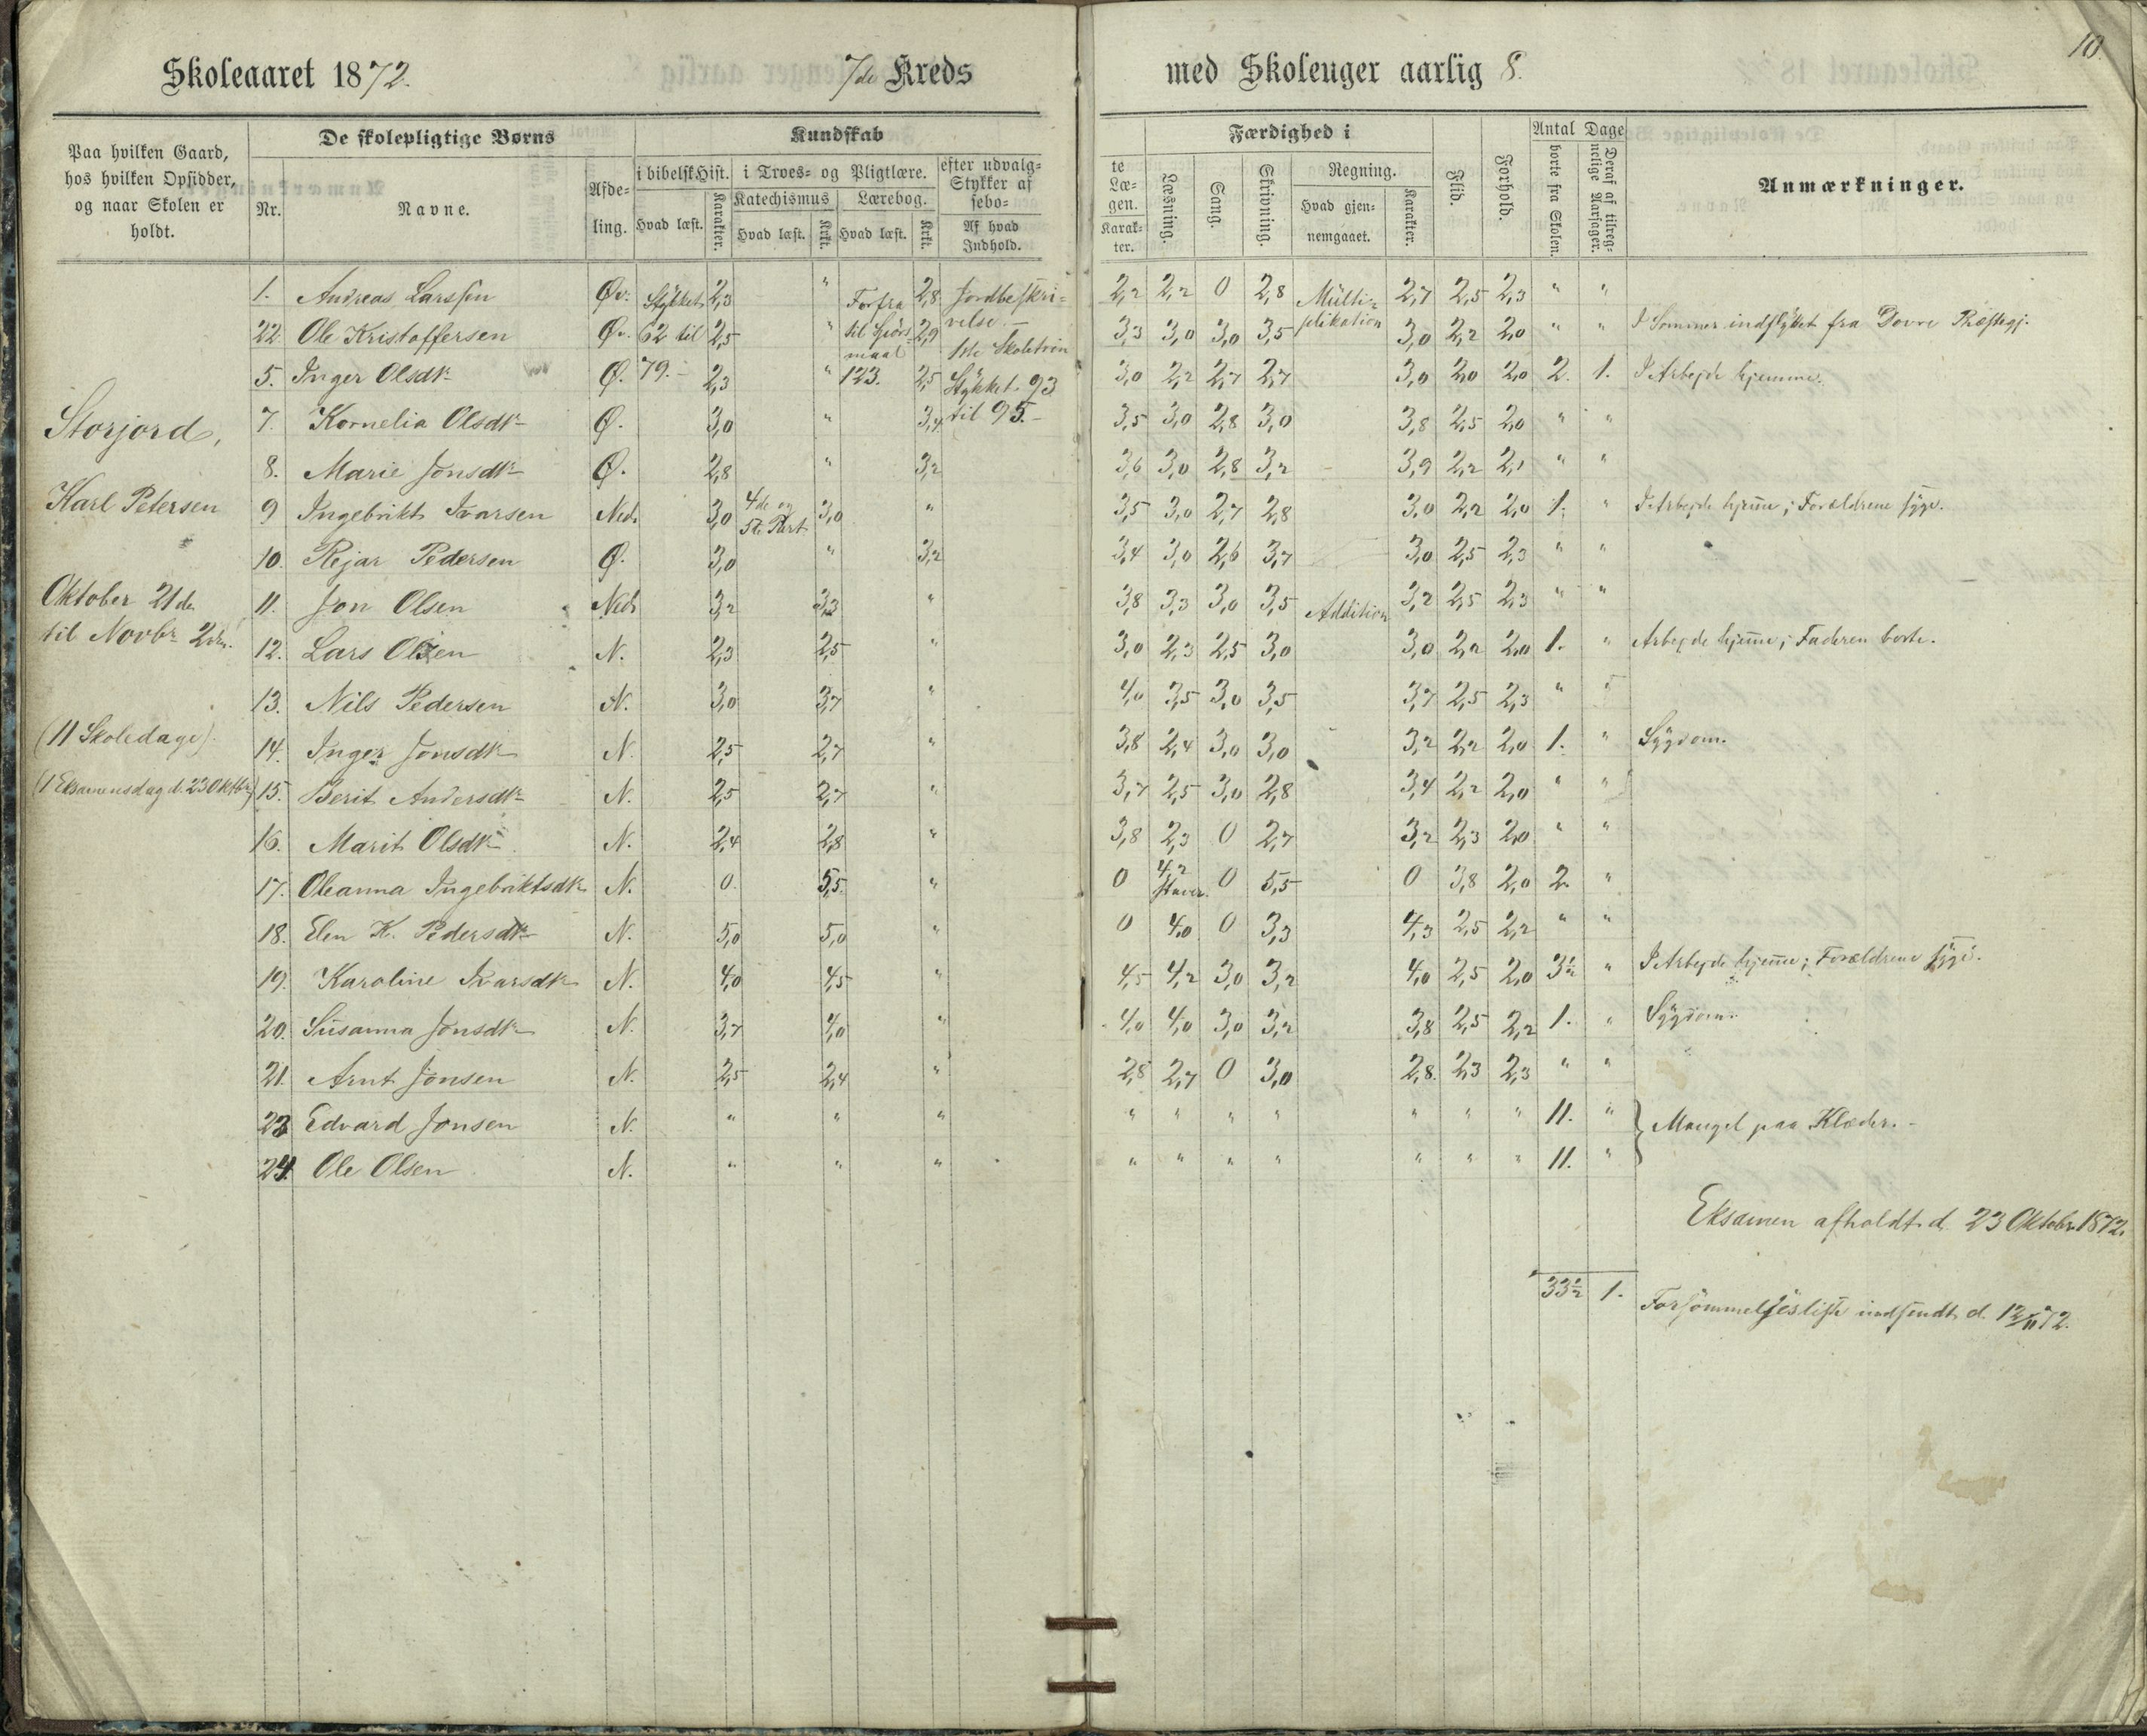 10.
Skoleaaret 1872. 7de Kreds med Skoleuger aarlig 8.
Paa hvilken Gaard, hos hvilken Opsidder, og naar Skolen er holdt.
De skolepligtige Børns
Nr. Navne. Afdeling.
Kundskab
i bibelsk Hist. i Troes- og Pligtlære. efter udvalg-te
Hvad læst. Karakter. Katechismus Lærebog. Stykker af Læ-sebo-gen.
Hvad læst. Krkt. Hvad læst. Krkt. Af hvad Indhold. Karak-ter.
Færdighed i
Læsning. Sang. Skrivning. Regning.
Hvad gjen-nemgaaet. Karakter.
Flid. Forhold.
Antal Dage
borte fra Skolen. Deraf af tilreg-nelige Aarsager.
Anmærkninger.
Storjord,
Karl Petersen
Oktober 21de
til Novbr 2den.
(11 Skoledage).
(1 Eksamensdag d. 23 Oktbr)
1. Andreas Larssen Øv. Stykket 2,3 " Forfra 2,8 Jordbeskri- 2,2 2,2 0 2,8 Multi- 2,7 2,5 2,3 " "
22. Ole Kristoffersen Øv. 62 til 2,5 " til Spörs- 2,9 velse.- 3,3 3,0 3,0 3,5 plikation 3,0 2,2 2,0 " " I Sommer indflyttet fra Dovre Præstegj.
maal 1ste Skoletrin
5. Inger Olsdtr Ø. 79.- 2,3 " 123. 2,5 Stykket 93 3,0 2,2 2,7 2,7 3,0 2,0 2,0 2. 1. I Arbejde hjemme.
7. Kornelia Olsdtr Ø. 3,0 " 3,4 til 95.- 3,5 3,0 2,8 3,0 3,8 2,5 2,0 " "
8. Marie Jonsdtr Ø. 2,8 " 3,2 3,6 3,0 2,8 3,2 3,9 2,2 2,1 " "
9 Ingebrikt Ivarsen Ned. 3,0 4de og 5te Part 3,0 " 3,5 3,0 2,7 2,8 3,0 2,2 2,0 1. " I Arbejde hjem̄e; Forældrene syge.
10. Rejar Pedersen Ø. 3,0 " 3,2 3,4 3,0 2,6 3,7 3,0 2,5 2,3 " "
11. Jon Olsen Ned. 3,2 3,3 " 3,8 3,3 3,0 3,5 Addition 3,2 2,5 2,3 " "
12. Lars Olsen N. 2,3 2,5 " 3,0 2,3 2,5 3,0 3,0 2,2 2,0 1. " Arbejde hjem̄e; Faderen borte.
13. Nils Pedersen N. 3,0 3,7 " 4,0 3,5 3,0 3,5 3,7 2,5 2,3 " "
14. Inger Jonsdtr N. 2,5 2,7 " 3,8 2,4 3,0 3,0 3,2 2,2 2,0 1. " Sygdom.
15. Berit Andersdtr N. 2,5 2,7 " 3,7 2,5 3,0 2,8 3,4 2,2 2,0 " "
16. Marit Olsdtr N. 2,4 2,8 " 3,8 2,3 0 2,7 3,2 2,3 2,0 " "
17. Oleanna Ingebriktsdtr N. 0. 5,5. " 0 4,2 staver. 0 5,5 0 3,8 2,0 2. "
18. Elen K. Pedersdtr N. 5,0 5,0 " 0 4,0 0 3,3 4,3 2,5 2,2 " "
19. Karoline Ivarsdtr N. 4,0 4,5 " 4,5 4,2 3,0 3,2 4,0 2,5 2,0 3½ " I Arbejde hjem̄e; Forældrene syge.
20. Susanna Jonsdtr N. 3,7 4,0 " 4,0 4,0 3,0 3,2 3,8 2,5 2,2 1. " Sygdom.
21. Arnt Jonsen N. 2,5 2,4 " 2,8 2,7 0 3,0 2,8. 2,3 2,3 " "
23 Edvard Jonsen N. " " " " " " " " " " 11. " } Mangel paa Klæder.-
24. Ole Olsen N. " " " " " " " " " " 11. "
Eksamen afholdt d. 23 Oktober 1872.
33½ 1.
Forsömmelsesliste indsendt d. 12/11 72.